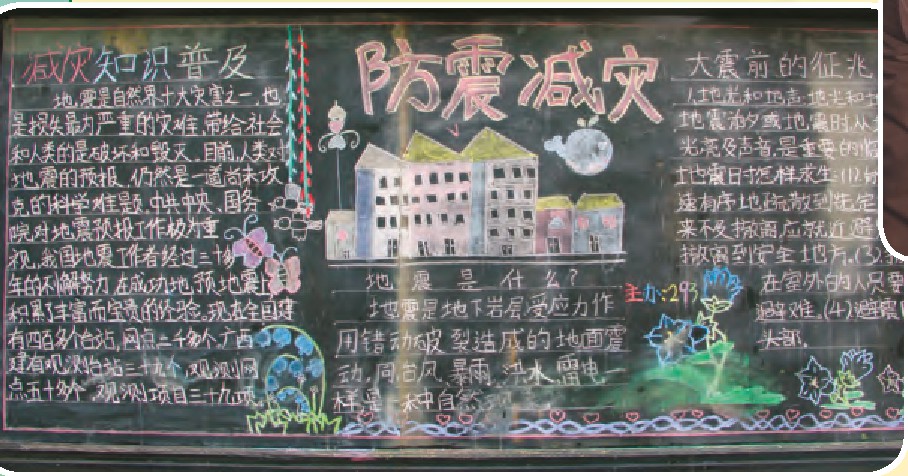 减灾知识普及
地震是自然界十大灾害之一,也
是损失最为严重的灾难,带给社会
和人类的是破坏和毁灭。目前,人类对
地震的预报,仍然是一道尚未攻
克的科学难题。中共中央、国务
院对地震预报工作极为重
视,我国地震工作者经过三十多
年的不懈努力,在成功地预地震上
和累了丰富而宝贵的经验。现在全国建
有四百多个台站,网点二千多个,广西
建有观测台站三十九个,观测网
点五十多个,观测项目三十九项。
防震减灾
地震是什么?
地震是地下岩层受应力作
用错动破裂造成的地面震
动,同台风、暴雨、洪水、雷电一
样是一种自然
主办:293
大震前的征兆
地光和地声:地光和地
地震治夕或地震时,从
光亮及声音,是重要的临
地震日寸怎样求生:(1).
速有序地疏散到
来不及撤离应就近避
撤离到安全地方。(3)
在室外的人只要
避难。(4)避震
头部。